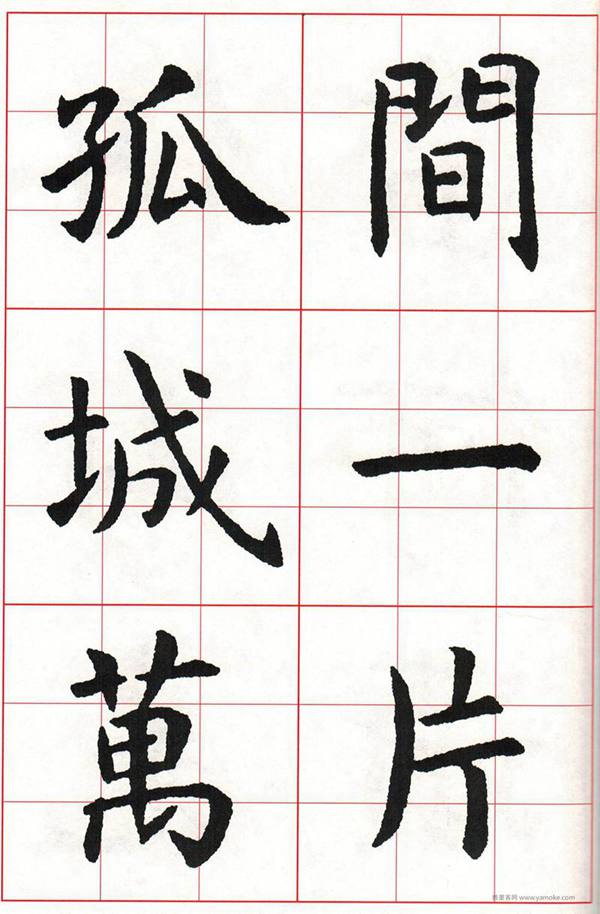 間一片
孤城萬
www.yamoke.com